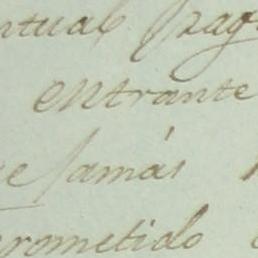 ntual pag
entrante
e Jamás
rometido